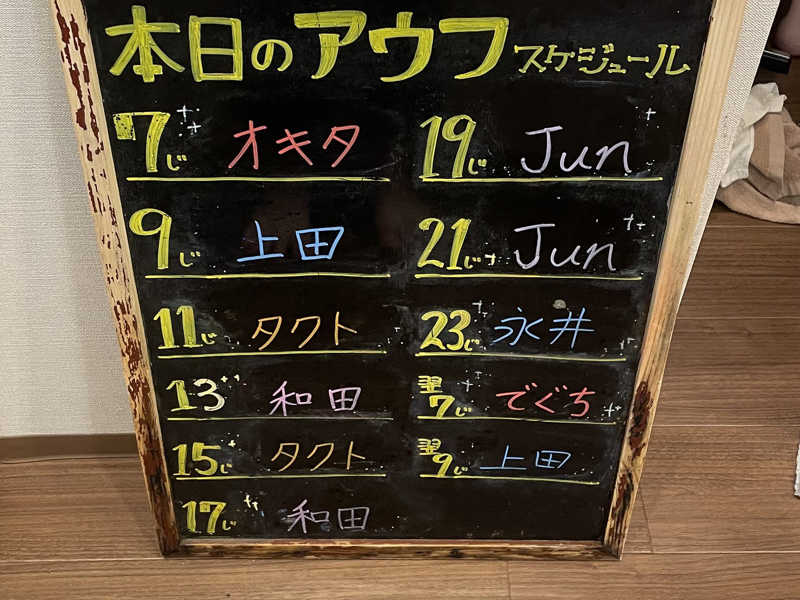 本日のアウフスケジュール
7じ オキタ
9じ 上田
11じ タクト
13 和田
15じ タクト
17じ 和田
19じ Jun
21じ Jun
23じ 永井
翌7じ でぐち
翌9じ 上田